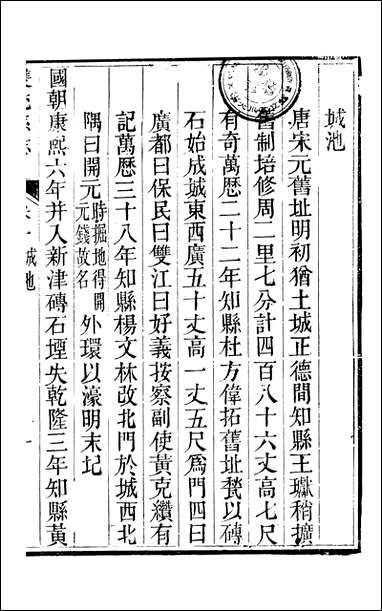 城池
唐宋元舊址明初猶土城正德間知縣王𤩽稍擴
舊制培修周二里七分計四百八十六丈高七尺
有奇萬歷二十二年知縣杜方偉拓舊址甃以磚
石始成城東西廣五十丈高一丈五尺爲門四曰
廣都曰保民曰雙江曰好義按察副使黃克纘有
記萬歷三十八年知縣楊文林改北門於城西北
隅曰開元時掘地得開元錢故名外環以濠明末圮
國朝康熙六年并入新津磚石堙失乾隆三年知縣黃
雙流縣志
卷一 城池